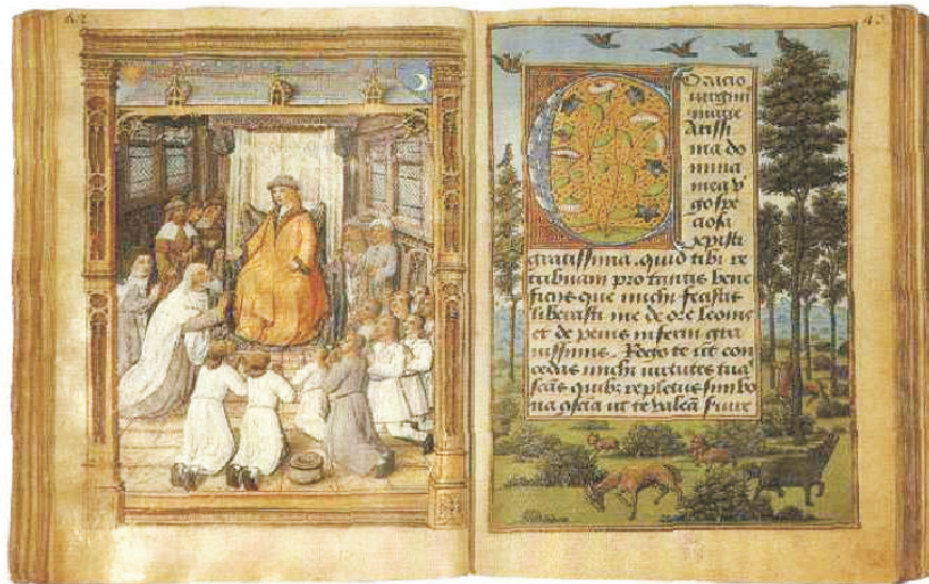 43
Oracio
marie
CArissi
ma do
mina
mea v
go spe
ciosa
xpisti
gratissima. quid tibi re
tribuam pro tantis bene
ficiis que michi fecistis
liberasti me de ore leonis
et de penis inferni gra
uissimis. Rogo te ut con
cedas michi virtutes tua
repletus sim bo
na ut te valeã